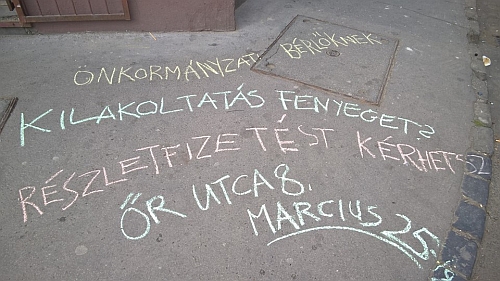 ÖNKORMÁNYZATI BÉRLŐKNEK
KILAKOLTATÁS FENYEGET?
RÉSZLETFIZETÉST KÉRHETSZ
ŐR UTCA 8.
MÁRCIUS 25.